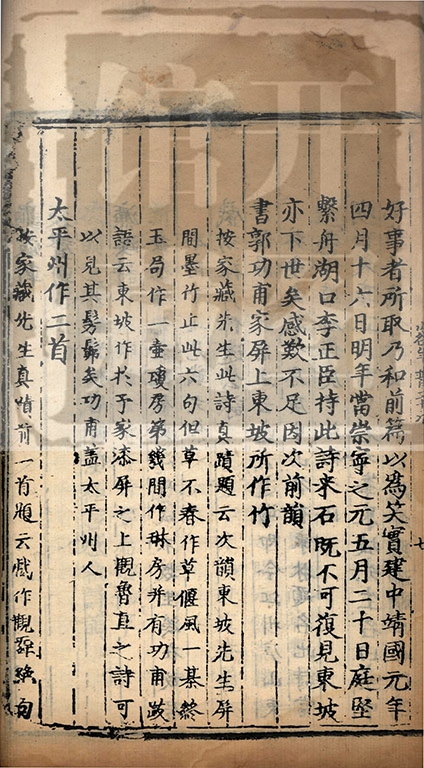 好事者所取乃和前篇以為笑實建中靖國元年
四月十六日明年當崇寧之元五月二十日庭堅
繫舟湖口李正臣持此詩来石既不可復見東坡
亦下世矣感歎不足因次前韻
書郭功甫家屏上東坡所作竹
按家藏先生此詩真蹟題云次韻東坡先生屏
間墨竹止此六句但草不春作草偃風一棊終
玉局作一壷瓊房第幾間作琳房并有功甫跋
語云東坡作扵予家漆屏之上觀魯直之詩可
以見其髣髴矣功甫盖太平州人
太平州作二首
按家藏先生真蹟前一首題云戲作觀舞絶句
七